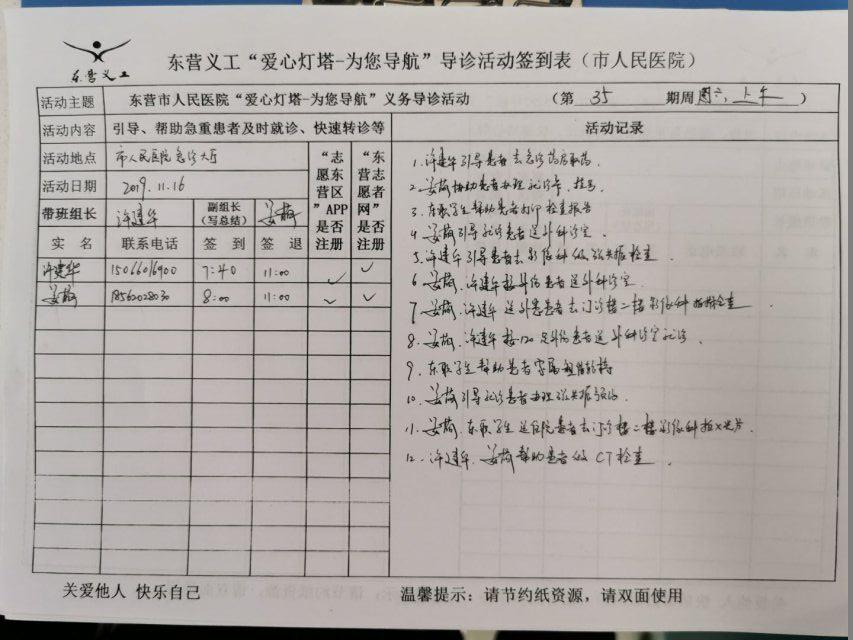 东营义工
东营义工“爱心灯塔-为您导航”导诊活动签到表（市人民医院）
活动主题 东营市人民医院“爱心灯塔-为您导航”义务导诊活动 （第 35 期周 周六，上午 ）
活动内容 引导、帮助急重患者及时就诊、快速转诊等 活动记录
活动地点 市人民医院急诊大厅
活动日期 2019.11.16
“志愿东营区”APP是否注册
“东营志愿者网”是否注册
带班组长 许建华 副组长（写总结） 姜梅
实 名 联系电话 签 到 签 退
许建华 15066016900 7:40 11:00 ✓ ✓
姜梅 18562028030 8:00 11:00 ✓ ✓
1. 许建华引导患者去急诊药房取药.
2. 姜梅协助患者办理就诊卡、挂号
3. 东职学生帮助患者打印检查报告
4. 姜梅引导就诊患者送外科诊室.
5. 许建华引导患者去影像科做磁共振检查.
6. 姜梅、许建华接外伤患者送外科诊室
7. 姜梅、许建华送外患患者去门诊楼二楼影像科拍检查
8. 姜梅、许建华接120 外伤患者送外科诊室就诊.
9. 东职学生帮助患者家属租借轮椅
10. 姜梅引导就诊患者办理磁共振预约.
11. 姜梅、东职学生送住院患者去门诊楼二楼影像科拍X光片.
12. 许建华、姜梅帮助患者做CT检查.
关爱他人 快乐自己 温馨提示：请节约纸资源，请双面使用